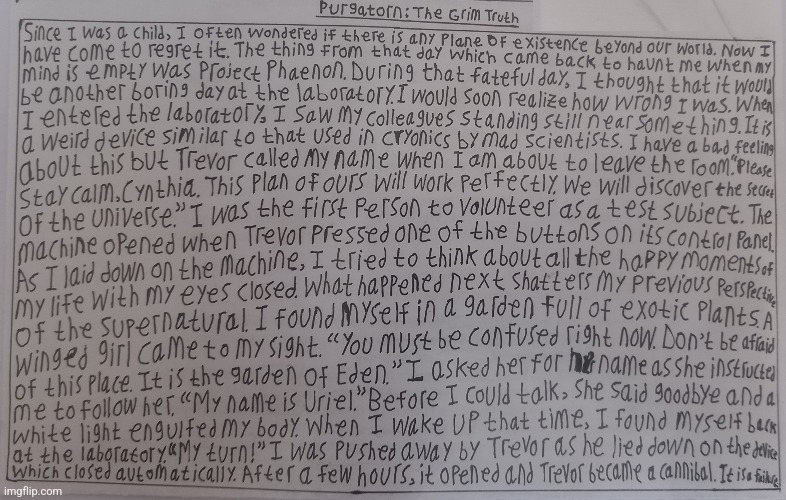 Purgatorn: The Grim Truth
Since I was a child, I often wondered if there is any plane of existence beyond our world. Now I
have come to regret it. The thing from that day which came back to haunt me when my
mind is empty was Project Phaenon. During that fateful day, I thought that it would
be another boring day at the laboratory. I would soon realize how wrong I was. When
I entered the laboratory, I saw my colleagues standing still near something. It is
a weird device similar to that used in cryonics by mad scientists. I have a bad feeling
about this but Trevor called my name when I am about to leave the room. "Please
stay calm, Cynthia. This plan of ours will work perfectly. We will discover the secret
of the universe." I was the first person to volunteer as a test subject. The
machine opened when Trevor pressed one of the buttons on its control panel.
As I laid down on the machine, I tried to think about all the happy moments of
my life with my eyes closed. What happened next shatters my previous perspective
of the supernatural. I found myself in a garden full of exotic plants. A
winged girl came to my sight. "You must be confused right now. Don't be afraid
of this place. It is the garden of Eden." I asked her for her name as she instructed
me to follow her. "My name is Uriel." Before I could talk, she said goodbye and a
white light engulfed my body. When I wake up that time, I found myself back
at the laboratory. "My turn!" I was pushed away by Trevor as he lied down on the device
which closed automatically. After a few hours, it opened and Trevor became a cannibal. It is a failure.
imgflip.com